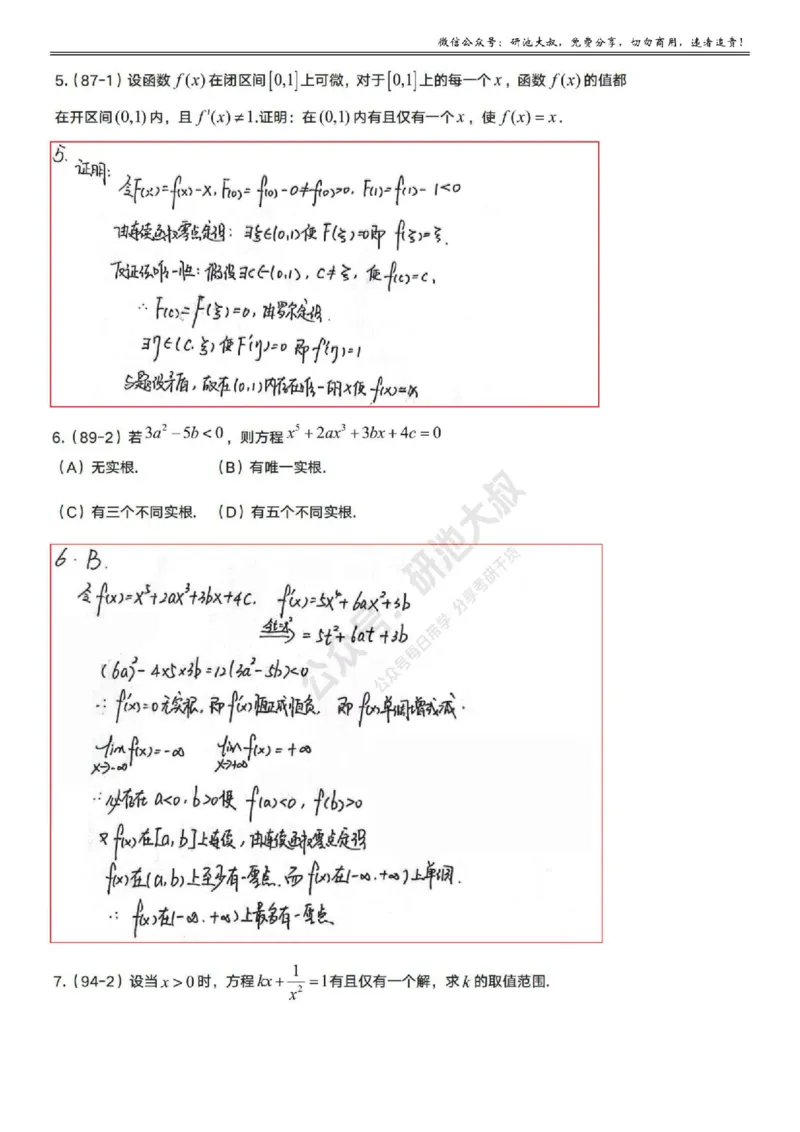 微信公众号：研池大叔，免费分享，切勿商用，违者追责！
5.（87-1）设函数 f(x) 在闭区间[0,1]上可微，对于[0,1]上的每一个 x，函数 f(x) 的值都
在开区间(0,1)内，且 f′(x)≠1.证明：在(0,1)内有且仅有一个 x，使 f(x)=x.
5.
证明：
令F(x)=f(x)-x, F(0)=f(0)-0≠f(0)>0, F(1)=f(1)-1<0
由连续函数零点定理：∃ξ∈(0,1)使F(ξ)=0即 f(ξ)=ξ.
反证保唯一性：假设∃c∈(0,1), c≠ξ, 使f(c)=c,
∴ F(c)=F(ξ)=0, 由罗尔定理.
∃η∈(c,ξ)使F′(η)=0即f′(η)=1
与题设矛盾，故在(0,1)内存在唯一的x使f(x)=x
6.（89-2）若3a²-5b<0，则方程 x⁵+2ax³+3bx+4c=0
（A）无实根. （B）有唯一实根.
（C）有三个不同实根. （D）有五个不同实根.
6. B.
令f(x)=x⁵+2ax³+3bx+4c. f′(x)=5x⁴+6ax²+3b
令t=x² = 5t²+6at+3b
(6a)²-4×5×3b=12(3a²-5b)<0
∴ f′(x)=0无实根，即f′(x)恒正或恒负. 即f(x)单调增或减.
lim x→-∞ f(x)=-∞ lim x→+∞ f(x)=+∞
∴必存在 a<0, b>0使 f(a)<0, f(b)>0
又f(x)在[a,b]上连续，由连续函数零点定理
f(x)在(a,b)上至少有一零点. 而f(x)在(-∞,+∞)上单调.
∴ f(x)在(-∞,+∞)上最多有一零点
公众号：研池大叔
公众号每日带学 分享考研干货
7.（94-2）设当 x>0 时，方程 kx+1/x²=1有且仅有一个解，求 k 的取值范围.